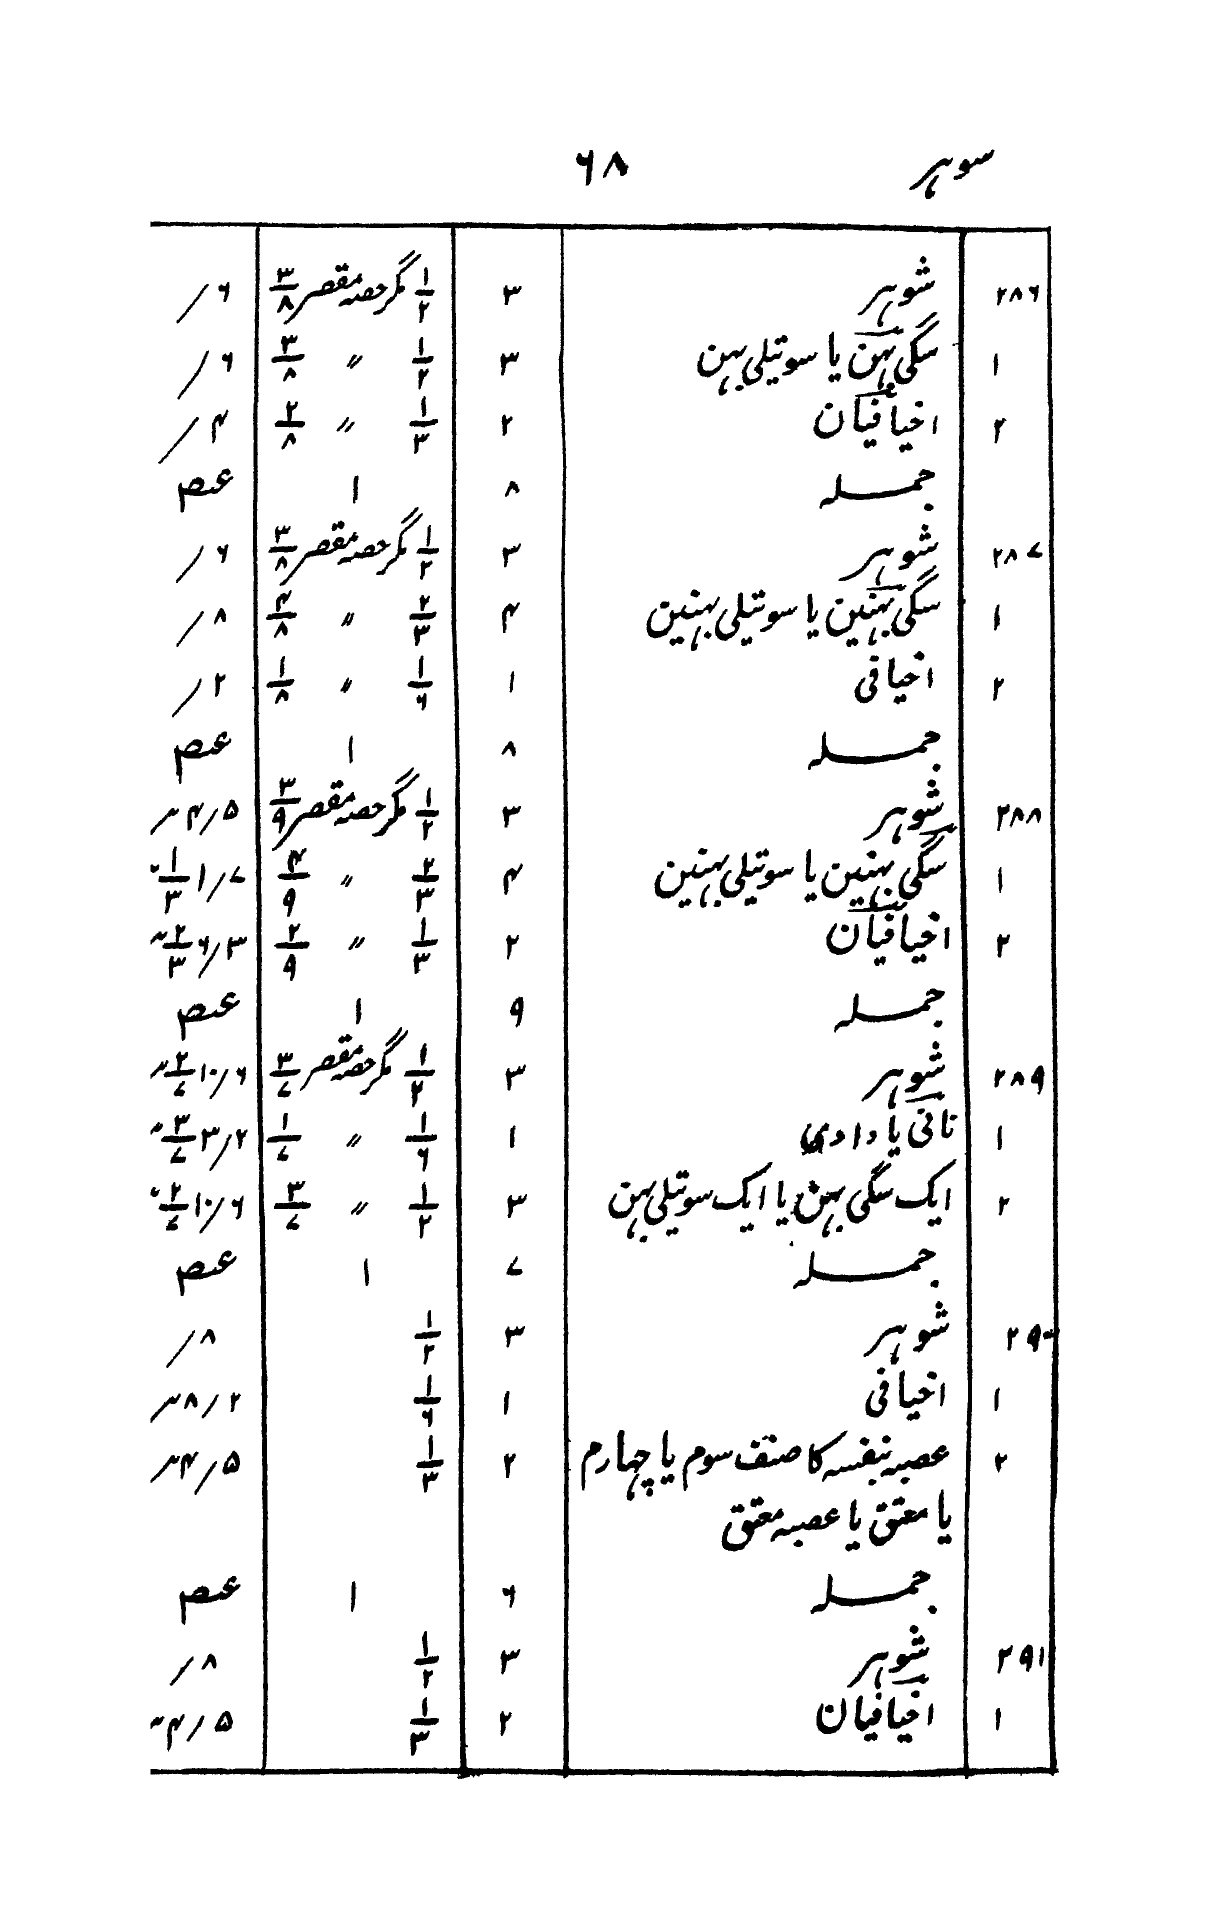 سوہر ۶۸
۲۸۶ شوہر ۳ ۱/۲ مگر حصہ مقصر ۳/۸ ۶/
۱ سگی بہن یا سوتیلی بہن ۳ ۱/۲ ״ ۳/۸ ۶/
۲ اخیافیان ۲ ۱/۳ ״ ۲/۸ ۴/
جملہ ۸ ۱ عہ
۲۸۷ شوہر ۳ ۱/۲ مگر حصہ مقصر ۳/۸ ۶/
۱ سگی بہنین یا سوتیلی بہنین ۴ ۲/۳ ״ ۴/۸ ۸/
۲ اخیافی ۱ ۱/۶ ״ ۱/۸ ۲/
جملہ ۸ ۱ عہ
۲۸۸ شوہر ۳ ۱/۲ مگر حصہ مقصر ۳/۹ ۵/۴
۱ سگی بہنین یا سوتیلی بہنین ۴ ۲/۳ ״ ۴/۹ ۷/۱ ۱/۳
۲ اخیافیان ۲ ۱/۳ ״ ۲/۹ ۳/۶ ۲/۳
جملہ ۹ ۱ عہ
۲۸۹ شوہر ۳ ۱/۲ مگر حصہ مقصر ۳/۷ ۶/۱۰ ۲/۷
۱ نانی یا دادی ۱ ۱/۶ ״ ۱/۷ ۲/۳ ۳/۷
۲ ایک سگی بہن یا ایک سوتیلی بہن ۳ ۱/۲ ״ ۳/۷ ۶/۱۰ ۲/۷
جملہ ۷ ۱ عہ
۲۹۰ شوہر ۳ ۱/۲ ۸/
۱ اخیافی ۱ ۱/۶ ۲/۸
۲ عصبہ بنفسہ کا صنف سوم یا چہارم ۲ ۱/۳ ۵/۴
یا معتق یا عصبہ معتق
جملہ ۶ ۱ عہ
۲۹۱ شوہر ۳ ۱/۲ ۸/
۱ اخیافیان ۲ ۱/۳ ۵/۴